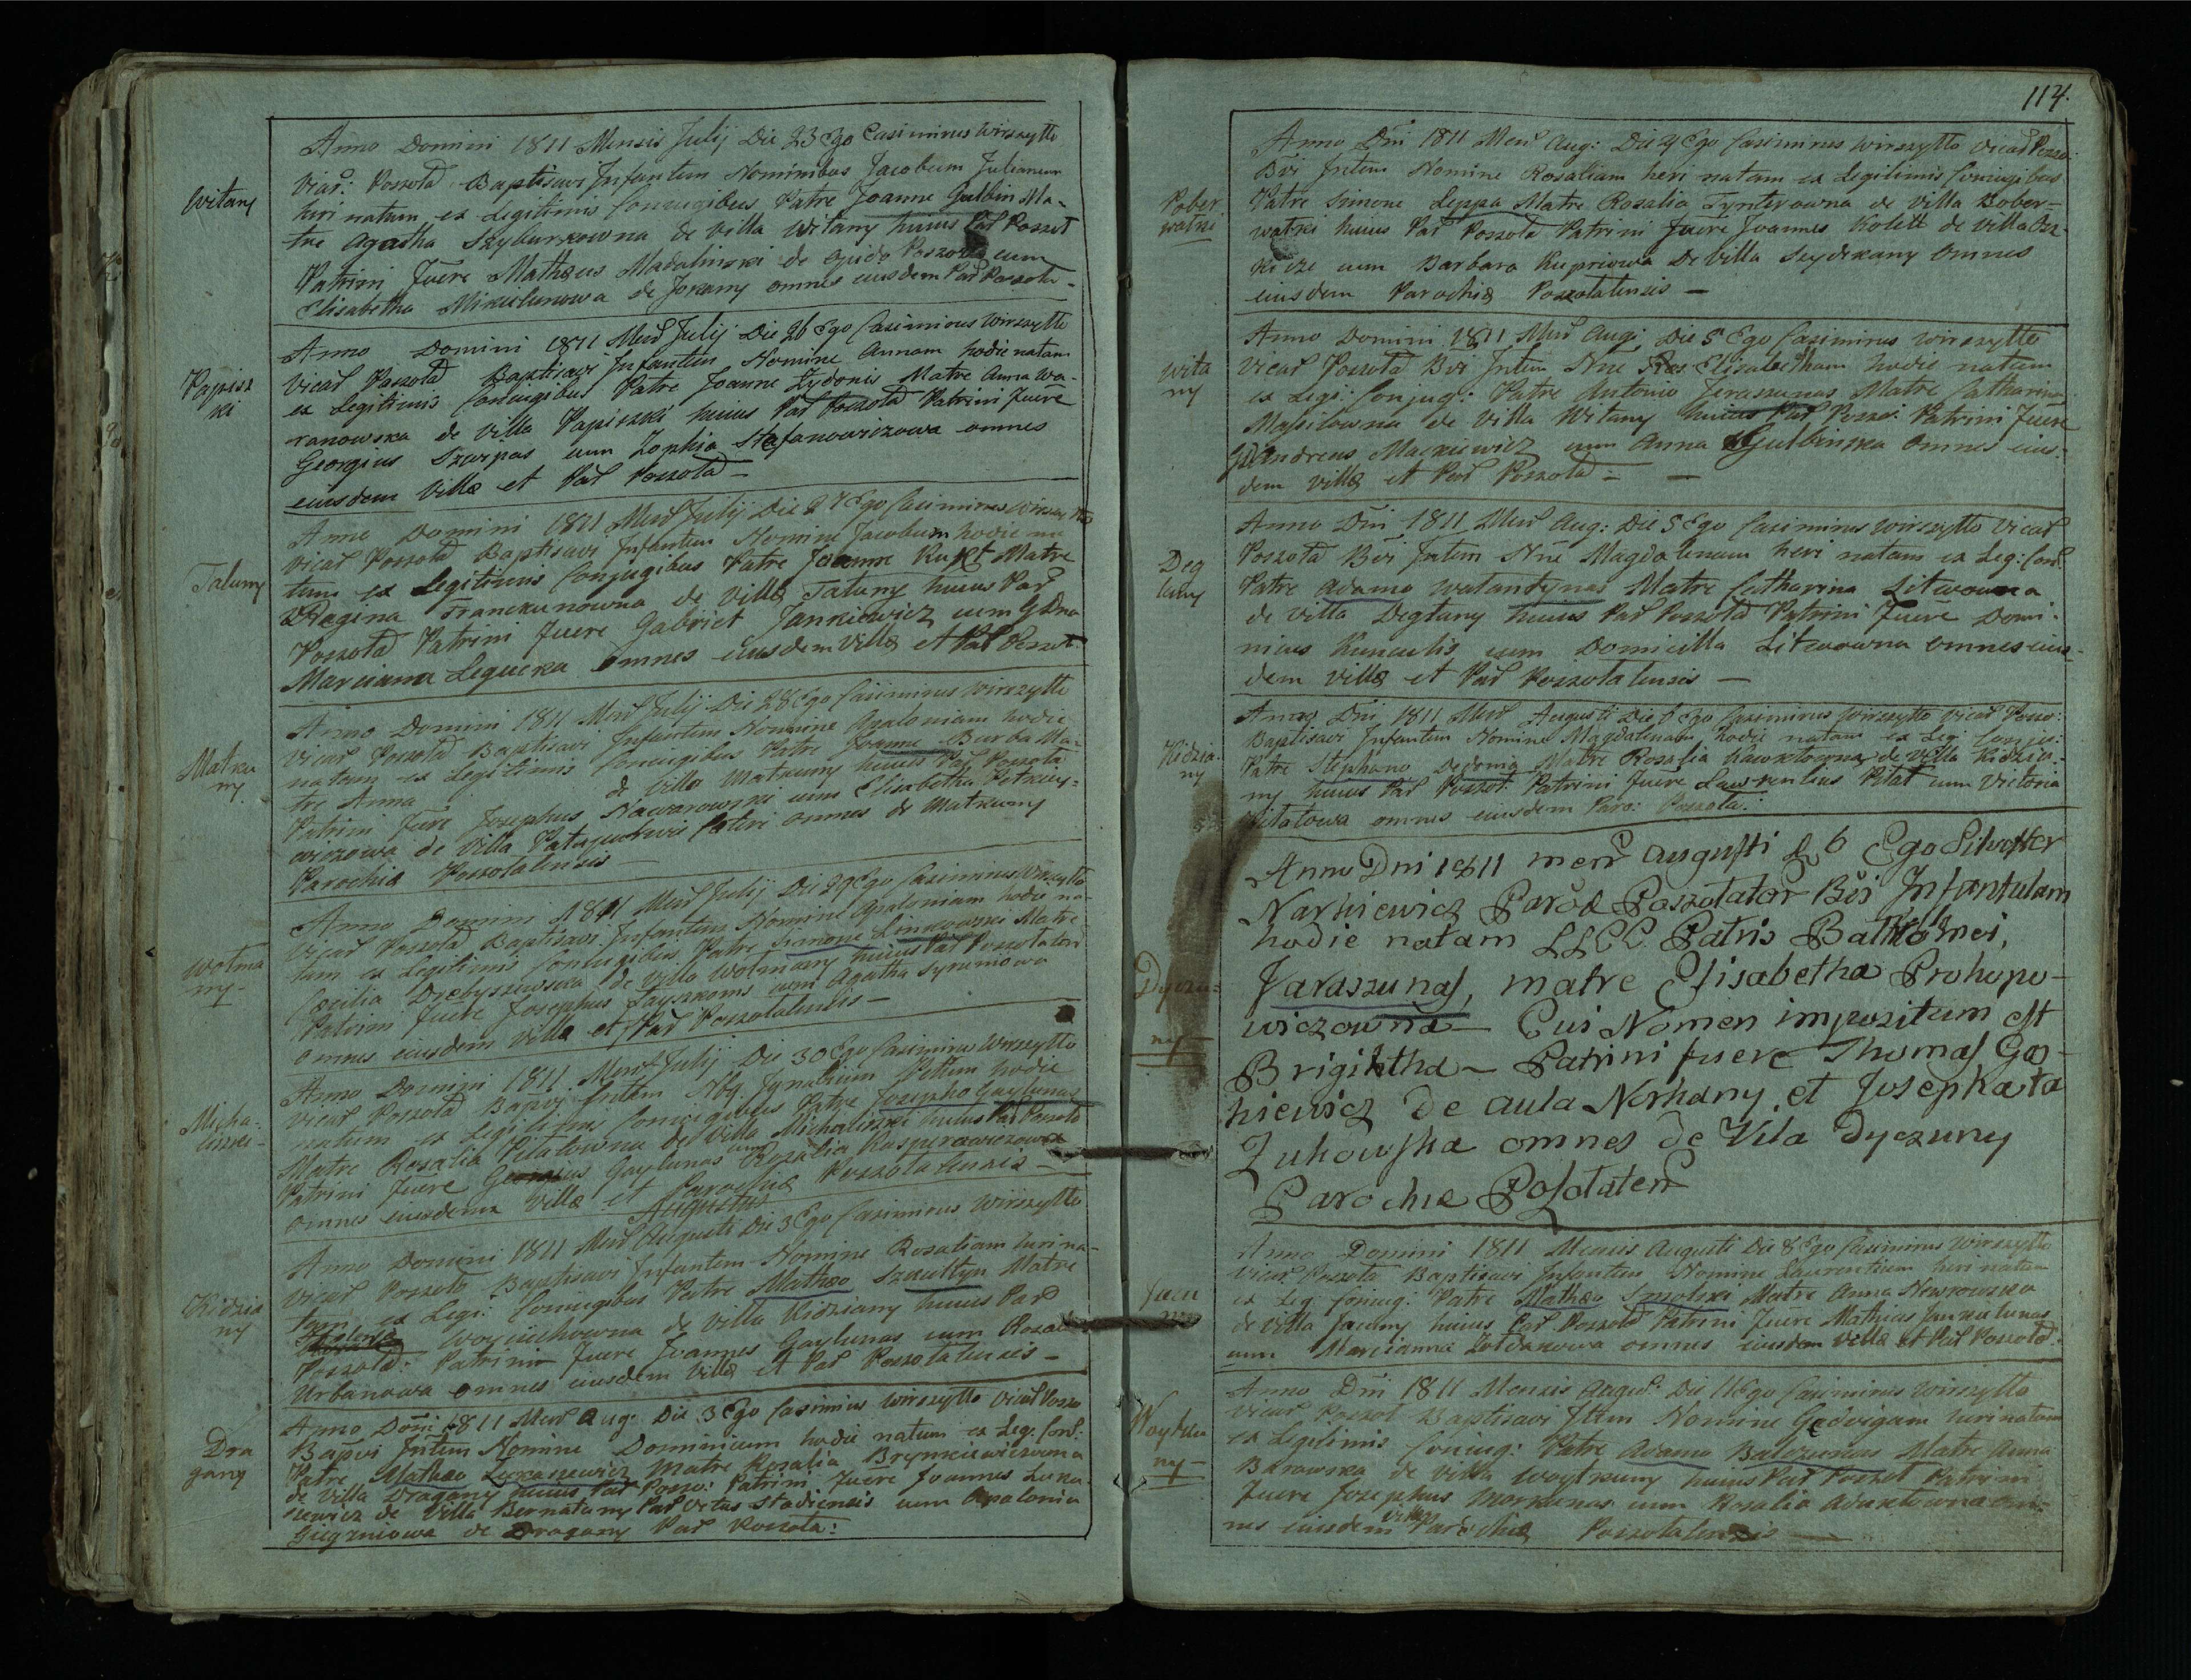 Witany
Anno Domini 1811 Mensis Julij Die 23 Ego Casimirus Wirszyłło
Vicar: Poszolᵈ Baptisavi Infantem Nominibus Jacobum Julianum
heri natum ex Legitimis Conjugibus Patre Joanne Gulbin Ma-
tre Agatha Szyburskowna de Villa Witany huius Par Poszol
Patrini fuere Mathæus Madalinski de Opido Poszola cum
Elisabetha Mikulunowa de Jokany omnes eiusdem Par Poszola-
Papisz
ki
Anno Domini 1811 Mens Julij Die 26 Ego Casimirus Wirszyłło
Vicar Poszolᵈ Baptisavi Infantem Nomine Annam hodie natam
ex Legitimis Conjugibus Patre Joanne Zydonis Matre Anna Wa-
ranowska de Villa Papiszki huius Par Poszolᵈ Patrini fuere
Georgius Szwipas cum Zophia Stefanowiczowa omnes
eiusdem Villæ et Par Poszolᵈ -
Taluny
Anno Domini 1811 Mens Julij Die 27 Ego Casimirus Wirszyłło
Vicar Poszolᵈ Baptisavi Infantem Nomine Jacobum hodie na
tum ex Legitimis Conjugibus Patre Joanne Kuket Matre
Regina Franckunowna de Villa Taluny huius Par
Poszolᵈ Patrini fuere Gabriel Jankiewicz cum GDna
Marcianna Legucka omnes eiusdem Villæ et Par Poszol:
Matku
ny
Anno Domini 1811 Mens Julij Die 28 Ego Casimirus Wirszyłło
Vicar Poszolᵈ Baptisavi Infantem Nomine Apaloniam hodie
natam ex Legitimis Conjugibus Patre Joanne Burba Ma-
tre Anna de Villa Matkuny huius Par Poszola
Patrini fuere Josephus Nawarowski cum Elisabetha Petkiey-
wiczowa de Villa omnes de Matkuny
Parochiæ Poszolatensis -
Wolma
ny-
Anno Domini 1811 Mens Julij Die 29 Ego Casimirus Wirszyłło
Vicar Poszolᵈ Baptisavi Infantem Nomine Apaloniam hodie na-
tam ex Legitimis Conjugibus Patre Simone Linkowski Matre
Cæcilia Drobyszewska de Villa Wolmany huius Par Poszolaten
Patrini fuere Josephus Layszkonis cum Agatha Syruniowa
omnes eiusdem Villæ et Par Poszolatensis -
Micha-
liszki-
Anno Domini 1811 Mens Julij Die 30 Ego Casimirus Wirszyłło
Vicar Poszolᵈ Bapvi Intem Nbq Ignatium Pettum hodie
natum ex Legitimis Conjugibus Patre Josepho Gaylunas
Matre Rosalia Pilatowna de Villa Michaliszki huius Par Poszolᵈ
Patrini fuere Georgius Gaylunas cum Rosalia Kasperowiczowa
omnes eiusdem Villæ et Parochiæ Poszolatensis -
Augustus
Kidzia
ny
Anno Domini 1811 Mens Augusti Die 3 Ego Casimirus Wirszyłło
Vicar Poszolᵈ Baptisavi Infantem Nomine Rosaliam heri na-
tam ex Legi: Conjugibus Patre Mathæo Szkultyn Matre
Woyciechowna de Villa Kidziany huius Par
Poszolᵈ: Patrini fuere Joannes Gaylunas cum Rosalia
Urbanowa omnes eiusdem Villæ et Par Poszolatensis -
Dra
gany
Anno Domi 1811 Mens Aug: Die 3 Ego Casimirus Wirszyłło Vicar Poszo
Bapvi Intem Nomine Dominicum hodie natum ex Leg: Conj:
Patre Mathæo Lukaszewicz Matre Rosalia Brynkiewiczowna
de Villa Dragany huius Par Poszo: Patrini fuere Joannes Luka
szewicz de Villa Bernatany Par Vetus Stodiensis cum Apalonia
Giegzniowa de Dragany Par Poszola:
114.
Pober
watki
Anno Dni 1811 Mens Aug: Die 4 Ego Casimirus Wirszyłło Vicar Poszo:
Bvi Intem Nomine Rosaliam heri natam ex Legitimis Conjugibus
Patre Simone Leppa Matre Rosalia Tynterowna de Villa Pober-
watki huius Par Poszolᵈ Patrini fuere Joannes Kolett de Villa
cum Barbara Kupriowa de Villa Seydzkany omnes
eiusdem Parochiæ Poszolatensis -
Wita
ny
Anno Domini 1811 Mens Aug: Die 5 Ego Casimirus Wirszyłło
Vicar Poszolᵈ Bvi Intem Nne Elisabetham hodie natam
ex Legi: Conjug: Patre Antonio Jeraszunas Matre Catharina
Massilowna de Villa Witany huius Par Poszo: Patrini fuere
GDAndreas Mackiewicz cum Anna Gulbinska omnes eius-
dem Villæ et Par Poszolᵈ -
Deg
luny
Anno Dni 1811 Mens Aug: Die 5 Ego Casimirus Wirszyłło Vicar
Poszolᵈ Bvi Intem Nne Magdalenam heri natam ex Leg: Conj.
Patre Adamo Walantynas Matre Catharina Litwowna
de Villa Degluny huius Par Poszolᵈ Patrini fuere Domi-
nicus Kunculis cum Domicilla Litwowna omnes eius-
dem Villæ et Par Poszolatensis -
Kidzia-
ny
Anno Dni 1811 Mens Augusti Die 6 Ego Casimirus Wirszyłło Vicar Poszo:
Baptisavi Infantem Nomine Magdalenam hodie natam ex Leg: Conju:
Patre Stephano Dedonia Matre Rosalia Kawxtowna de Villa Kidzia-
ny huius Par Poszol: Patrini fuere Laurentius Pilat cum Victoria
Pilatowa omnes eiusdem Paro: Poszola:
Dyczu-
ny
Anno Dni 1811 mens Augusti D 6 Ego Silvester
Narkiewicz Paroc Poszolater Bvi Infantulam
hodie natam LLCC Patris Batholomei,
Jaraszunas, matre Elisabetha Prokopo-
wiczowna - Cui Nomen impositum est
Brigittha - Patrini fuere Thomas Gos-
kiewicz de aula Norkany, et Josephata
Zukowska omnes de Vila Dyczuny
Parochiæ Posolaten
Jacu
ny
Anno Domini 1811 Mensis Augusti Die 8 Ego Casimirus Wirszyłło
Vicar Poszola Baptisavi Infantem Nomine Laurentium heri natum
ex Leg: Conjug: Patre Mathæo Smolski Matre Anna Newrowska
de Villa Jacuny huius Par Poszolᵈ Patrini fuere Mathias Jankulunas
cum Marcianna Zoldakowa omnes eiusdem Villæ et Par Poszolᵈ:
Woytku
ny-
Anno Dni 1811 Mensis Augus: Die 11 Ego Casimirus Wirszyłło
Vicar Poszol Baptisavi Ittem Nomine Gedvigam heri natam
ex Legitimis Conjug: Patre Adamo Balczunas Matre Anna
Barowska de Villa Woytkuny huius Par Poszol Patrini
fuere Josephus Morkunas cum Rosalia Adaxtowna om-
nes eiusdem Villæ Parochiæ Poszolatensis -